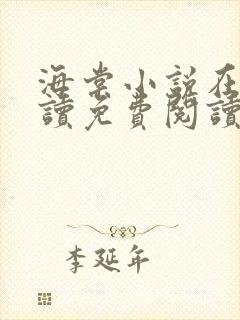 海棠小說在
讀免費閱讀
李延年